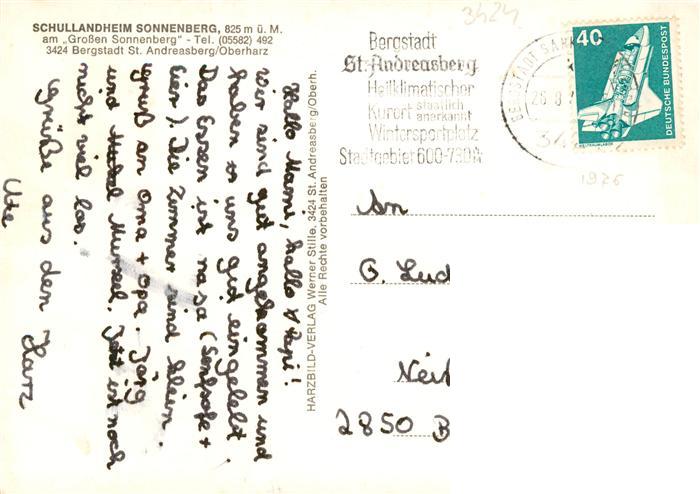 SCHULLANDHEIM SONNENBERG, 825 m ü. M.
am „Großen Sonnenberg" - Tel. (05582) 492
3424 Bergstadt St. Andreasberg/Oberharz
Hallo Mami, hallo Papi!
Wir sind gut angekommen und
haben uns gut eingelebt.
Das Essen ist na ja (Senfsoße +
Eier). Die Zimmer sind klein.
Gruß an Oma + Opa. Jörg
und Jetzt ist noch
nicht viel los.
Grüße aus dem Harz
Ute
HARZBILD-VERLAG Werner Stille, 3424 St. Andreasberg/Oberh.
Alle Rechte vorbehalten
3424
Bergstadt
St. Andreasberg
Heilklimatischer
Kurort staatlich anerkannt
Wintersportplatz
Stadtgebiet 600-730m
26.8.
40
DEUTSCHE BUNDESPOST
WELTRAUMLABOR
1976
An
G. Lud
2850 B